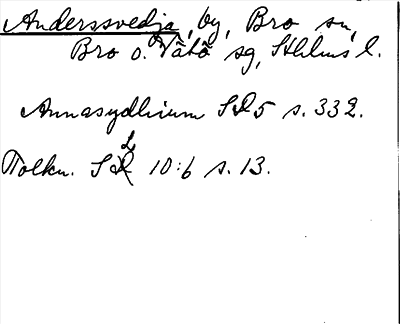 Anderssvedja, by, Bro sn,
Bro o. Vätö sg, Sthlms l.
Annasydhrium SD5 s. 332.
Tolkn. SL 10:6 s. 13.